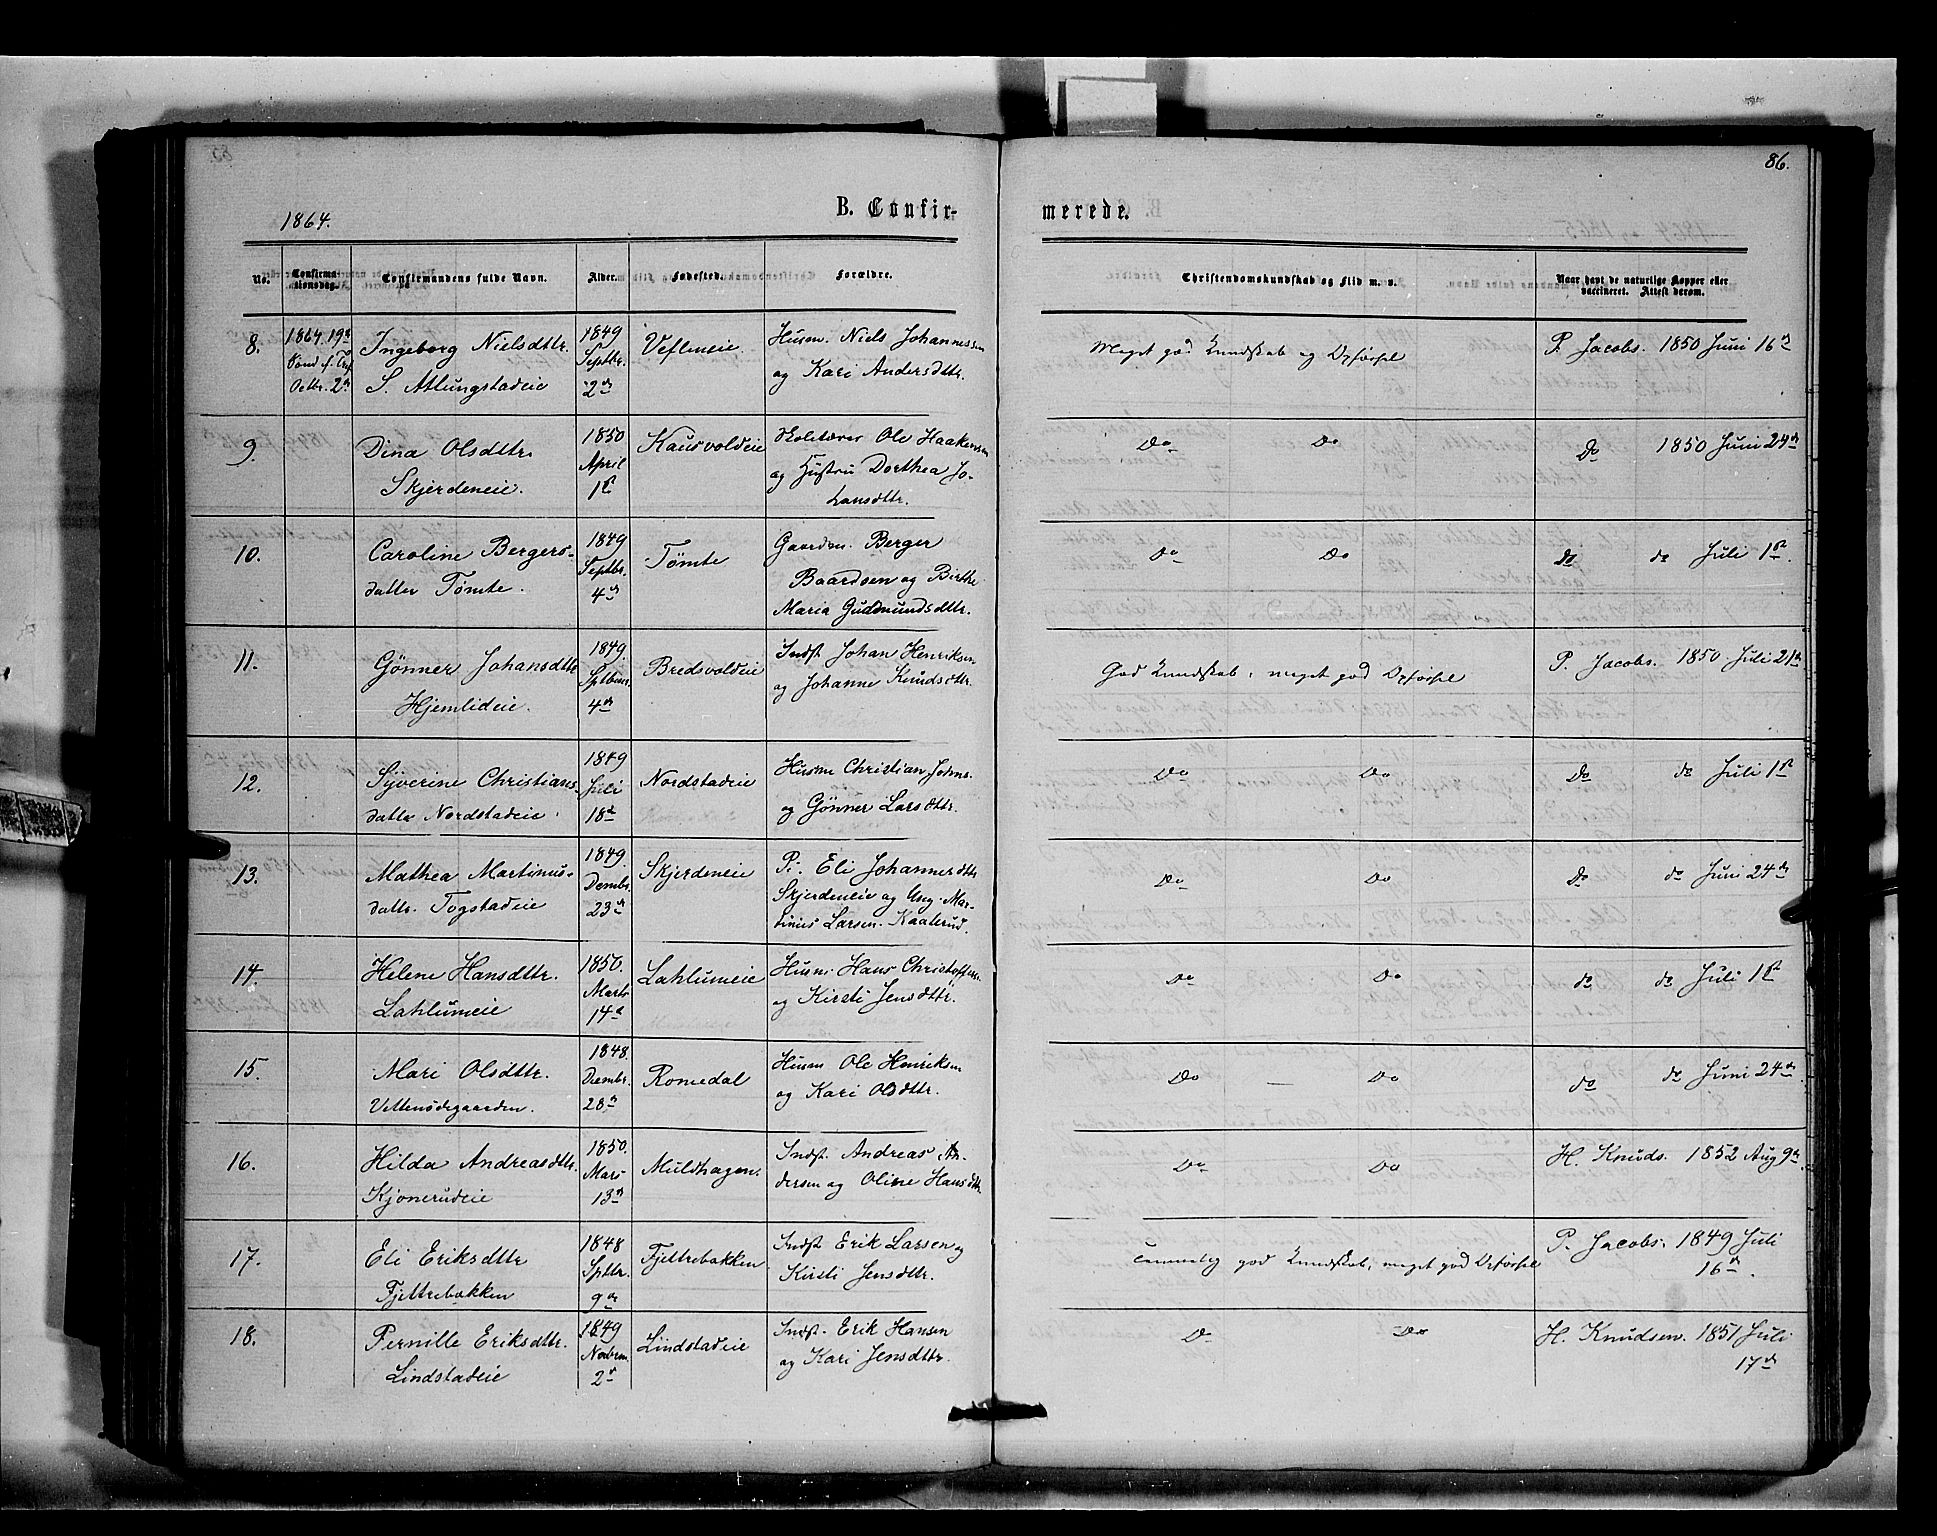 86.
1864.
B. Confir-
merede.
No.
Confirma-
tionsdag.
Confirmandens fulde Navn.
Alder.
Fødested.
Forældre.
Christendomskundskab og Flid m. v.
Naar havt de naturlige Kopper eller
vaccineret. Attest derom.
8.
1864. 19de
Octbr. 2den
Ingeborg Nielsdttr.
S. Atlungstadeie
1849
Septbr.
2den
Veflmeie.
Husm. Niels Johannessen
og Kari Andersdttr.
Meget god Kundskab og Opførsel
P. Jacobs. 1850 Juni 16de
9.
Dina Olsdttr.
Skjerdeneie.
1850
April
1ste
Kausvoldeie
Skolelærer Ole Haakensen
og Hustru Dorthea Jo-
hansdttr.
Do Do
Do 1850 Juni 24de
10.
Caroline Bergers-
datter Tømte.
1849
Septbr.
4de
Tømte
Gaardm. Berger
Baardsen og Birthe
Maria Gudmundsdttr.
Do Do
do do Juli 1ste.
11.
Gønner Johansdttr
Hjemlideie.
1849.
4de
Bredsvoldeie
Indst Johan Henriksen
og Johanne Knudsdttr.
God Kundskab, meget god Opførsel
P. Jacobs. 1850 Juli 21de
12.
Syverine Christians-
datter Nordstadeie.
1849
Juli
18de
Nordstadeie
Husm Christian Johns.
og Gønner Larsdttr.
Do Do
Do do Juli 1ste
13.
Mathea Martinus-
dattr. Togstadeie
1849.
Decmbr.
23de
Skjerdeneie
P. Eli Johannesdttr
Skjerdeneie og Ung. Mar-
tinus Larsen Kaaterud.
Do Do
Do do Juni 24de
14
Helene Hansdttr.
Lahlumeie
1850.
Marts
14de
Lahlumeie
Husm. Hans Christoffersen
og Kirsti Jensdttr.
Do Do
do do Juli 1ste
15.
Mari Olsdttr.
Vettensdegaarden.
1848.
Decmbr.
28de
Romedal
Husm Ole Henriksen
og Kari Olsdttr.
Do — Do
do do Juni 24de
16.
Hilda Andreasdttr.
Kjonerudeie
1850.
Mars
13de
Muldhagen.
Indst. Andreas An-
dersen og Oline Hansdttr.
Do Do
H. Knuds. 1852 Aug 9de
17.
Eli Eriksdttr
Fjettrebakken
1848
Sptbr.
9de
Fjettrebakken
Indst Erik Larsen og
Kirsti Jensdttr.
Temmelig god Kundskab, meget god Opførsel
P. Jacobs. 1849 Juli
16de.
18.
Pernille Eriksdttr.
Lindstadeie
1849
2den
Lindstadeie
Indst. Erik Hansen
og Kari Jensdttr.
Do Do
H. Knudsen. 1851 Juli
17de